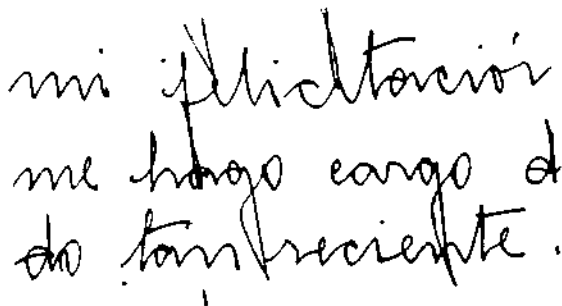 mi felicitación
me hago cargo d
do tan reciente.